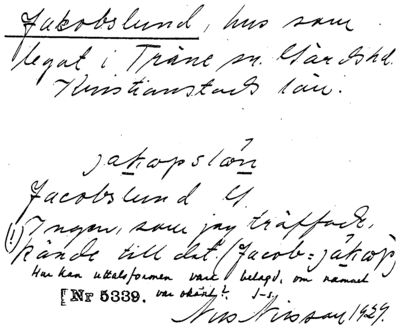 Jakobslund, hus som
legat i Träne sn. Gärds hd.
Kristianstads län.
jakɷpslɷ̈n
Jacobslund G.
(!) Ingen, som jag träffade,
kände till det. (Jacob = jäkɷp)
Hur kan uttalsformen vara belagd, om namnet
[Nr 5339. var okänt? J-s.
Nils Nilsson 1929.